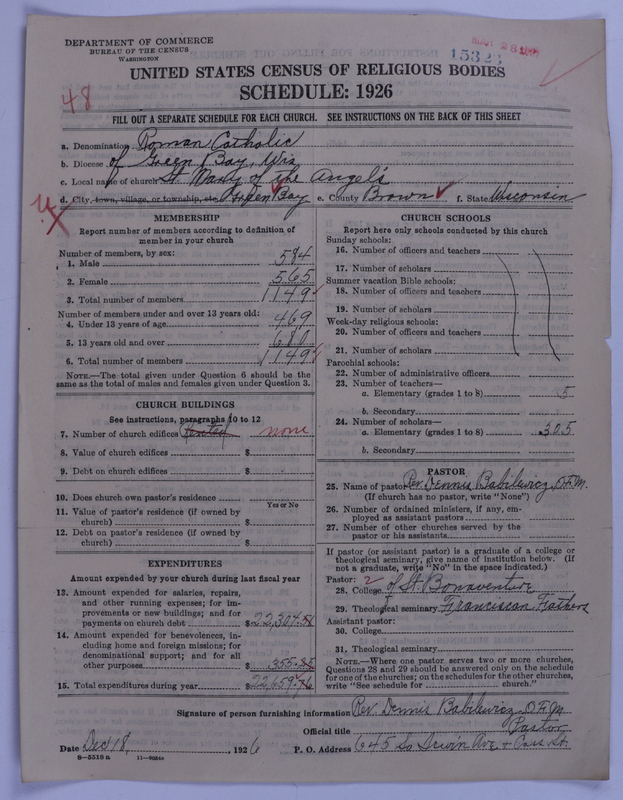 DEPARTMENT OF COMMERCE
BUREAU OF THE CENSUS
WASHINGTON
15323
48
UNITED STATES CENSUS OF RELIGIOUS BODIES
SCHEDULE: 1926
FILL OUT A SEPARATE SCHEDULE FOR EACH CHURCH. SEE INSTRUCTIONS ON THE BACK OF THIS SHEET
a. Denomination Roman Catholic
b. Diocese of Green Bay, Wis
c. Local name of church St. Mary of the Angels
d. City, town, village, or township, etc. Green Bay e. County Brown f. State Wisconsin
MEMBERSHIP
Report number of members according to definition of
member in your church
Number of members, by sex:
1. Male 584
2. Female 565
3. Total number of members 1149
Number of members under and over 13 years old:
4. Under 13 years of age 469
5. 13 years old and over 680
6. Total number of members 1149
NOTE.—The total given under Question 6 should be the
same as the total of males and females given under Question 3.
CHURCH BUILDINGS
See instructions, paragraphs 10 to 12
7. Number of church edifices none
8. Value of church edifices $
9. Debt on church edifices $
10. Does church own pastor's residence
Yes or No
11. Value of pastor's residence (if owned by
church) $
12. Debt on pastor's residence (if owned by
church) $
EXPENDITURES
Amount expended by your church during last fiscal year
13. Amount expended for salaries, repairs,
and other running expenses; for im-
provements or new buildings; and for
payments on church debt $ 22,304
14. Amount expended for benevolences, in-
cluding home and foreign missions; for
denominational support; and for all
other purposes $ 355
15. Total expenditures during year $ 22,659
CHURCH SCHOOLS
Report here only schools conducted by this church
Sunday schools:
16. Number of officers and teachers
17. Number of scholars
Summer vacation Bible schools:
18. Number of officers and teachers
19. Number of scholars
Week-day religious schools:
20. Number of officers and teachers
21. Number of scholars
Parochial schools:
22. Number of administrative officers
23. Number of teachers—
a. Elementary (grades 1 to 8) 5
b. Secondary
24. Number of scholars—
a. Elementary (grades 1 to 8) 305
b. Secondary
PASTOR
25. Name of pastor Rev. Dennis Babilewicz, O.F.M.
(If church has no pastor, write "None")
26. Number of ordained ministers, if any, em-
ployed as assistant pastors
27. Number of other churches served by the
pastor or his assistants
If pastor (or assistant pastor) is a graduate of a college or
theological seminary, give name of institution below. (If
not a graduate, write "No" in the space indicated.)
Pastor: 2
28. College of St. Bonaventure
29. Theological seminary Franciscan Fathers
Assistant pastor:
30. College
31. Theological seminary
NOTE.—Where one pastor serves two or more churches,
Questions 28 and 29 should be answered only on the schedule
for one of the churches; on the schedules for the other churches,
write "See schedule for church."
Signature of person furnishing information Rev. Dennis Babilewicz, O.F.M.
Official title Pastor
Date Dec 18, 1926 P. O. Address 645 So Irwin Ave + Cass St.
8—5518 a